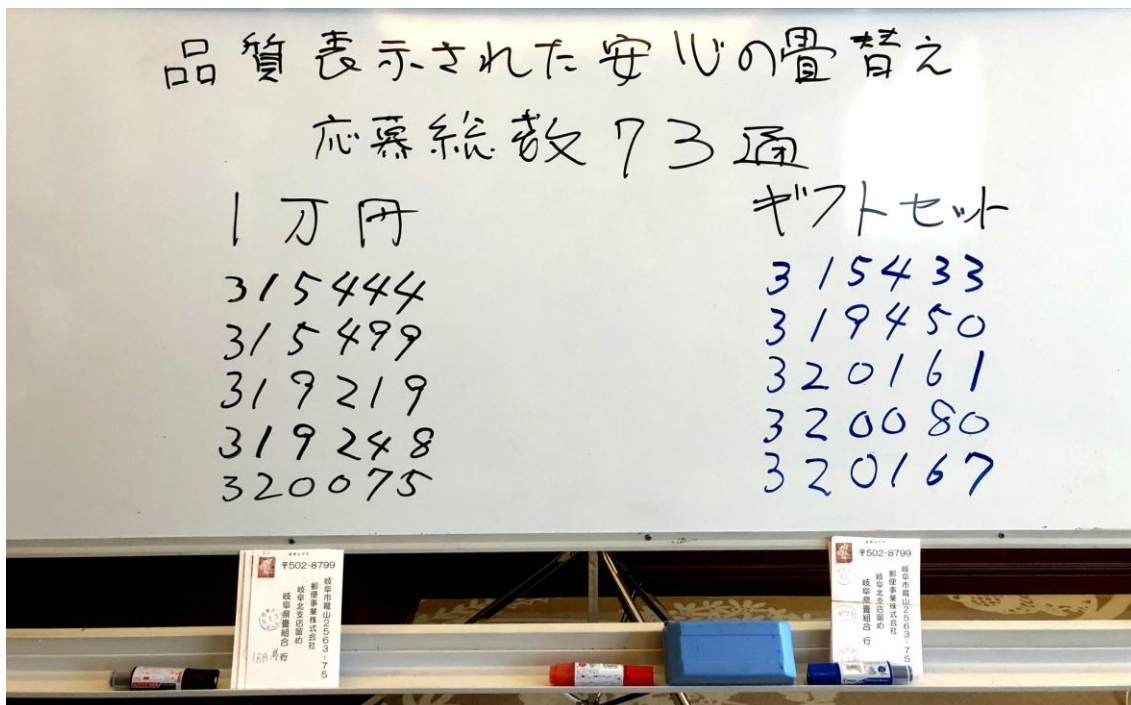 品質表示された安心の畳替え
応募総数73通
1万円
315444
315499
319219
319248
320075
ギフトセット
315433
319450
320161
320080
320167
〒502-8799
岐阜市鷺山2563-75
郵便事業株式会社
岐阜北支店留め
岐阜県畳組合 行
〒502-8799
岐阜市鷺山2563-75
郵便事業株式会社
岐阜北支店留め
岐阜県畳組合 行